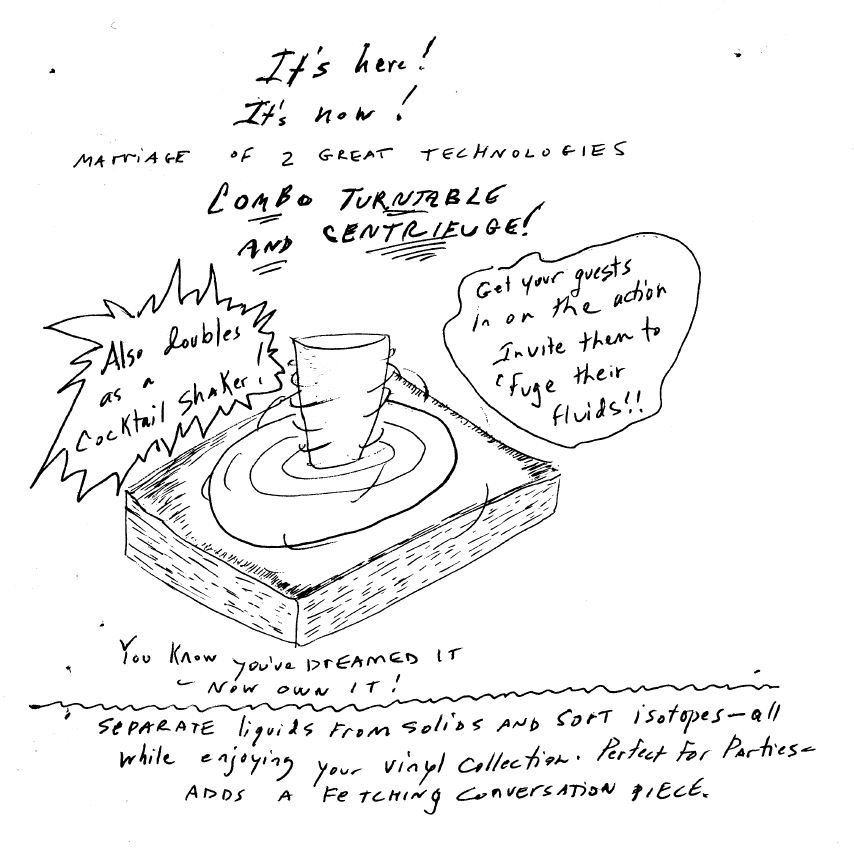 It's here!
It's now!
MArriAGE OF 2 GREAT TECHNOLOGIES
COMBO TURNTABLE
AND CENTRIFUGE!
Also doubles
as a
Cocktail Shaker!
Get your guests
in on the action
Invite them to
'fuge their
fluids!!
You Know you've DrEAMED IT
– NOW OWN IT!
SEPARATE liquids From Solids AND SORT isotopes–all
while enjoying your vinyl collection. Perfect For Parties–
ADDS A FETCHING CONVERSATION PIECE.